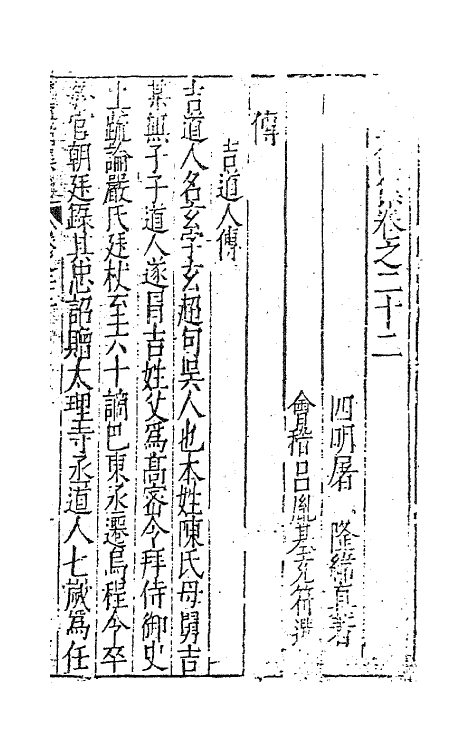 卷之二十二
四明屠 隆緯真著
會稽呂胤基玄符選
傳
吉道人傳
吉道人名玄字玄超句吳人也本姓陳氏母舅吉
某無子子道人遂冒吉姓父爲髙密令拜侍御史
上疏論嚴氏廷杖至六十謫巴東丞遷烏程令卒
官朝廷錄其忠詔贈太理寺丞道人七歲爲任